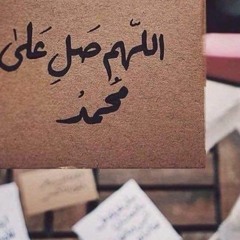 اللّهم صَلِ عَلىٰ
محُمدُ